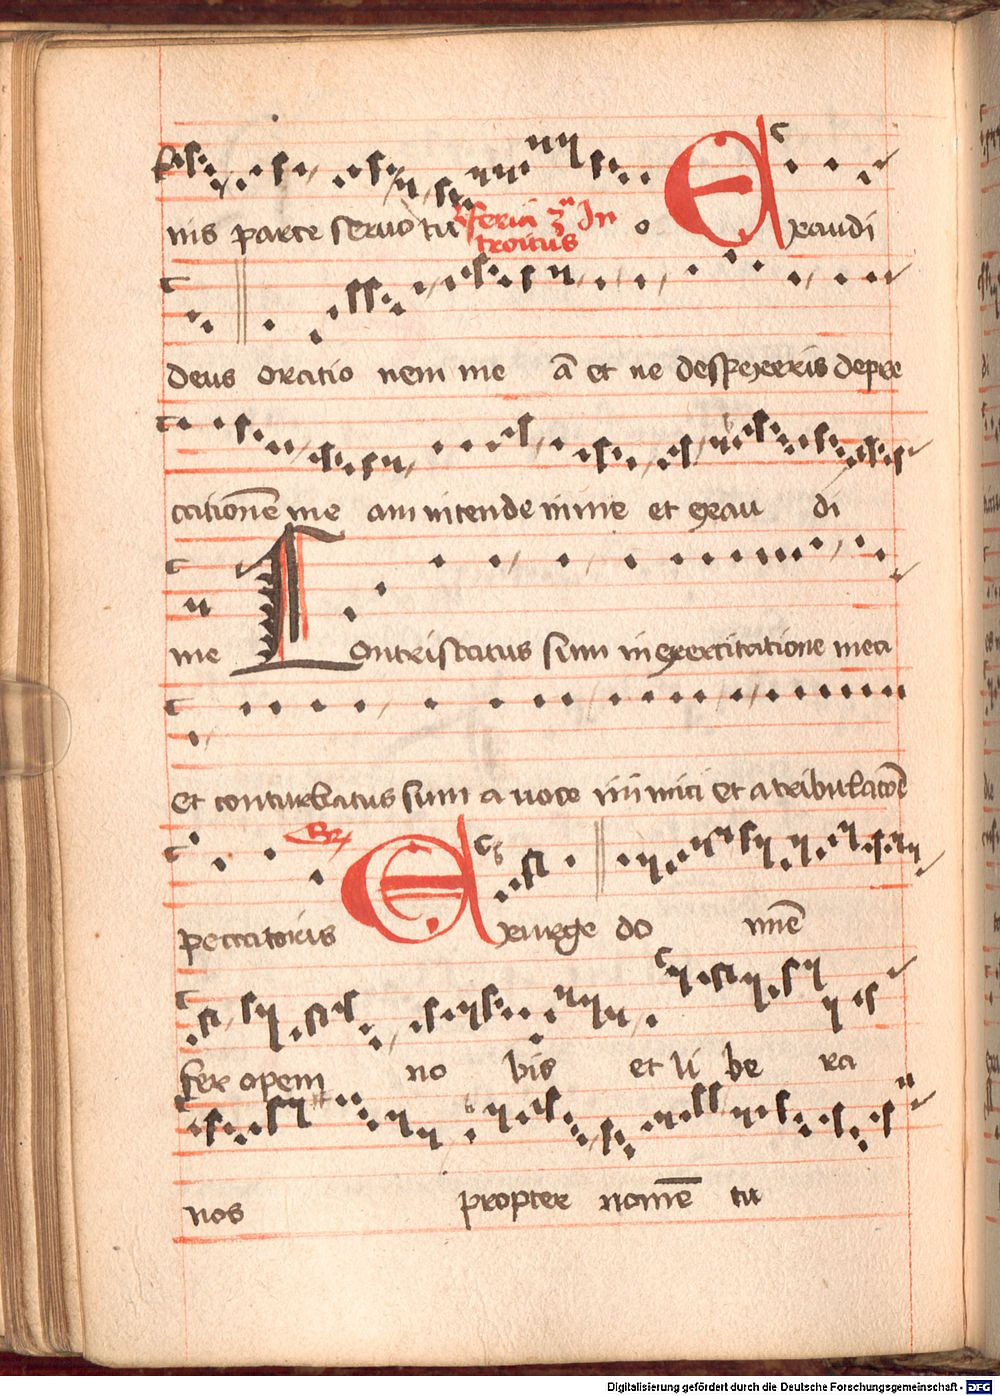 nis parce seruo tu o Exaudi
Feria 3ª In
troitus
deus oratio nem me ā et ne despexeris depre
cationē me am intende in me et exau di
me Contristatus sum in exercitatione mea
et conturbatus sum a voce inimici et a tribulacōe
peccatoris Exurge do minē
fer opem no bis et li be ra
nos propter nomē tu
Digitalisierung gefördert durch die Deutsche Forschungsgemeinschaft - DFG